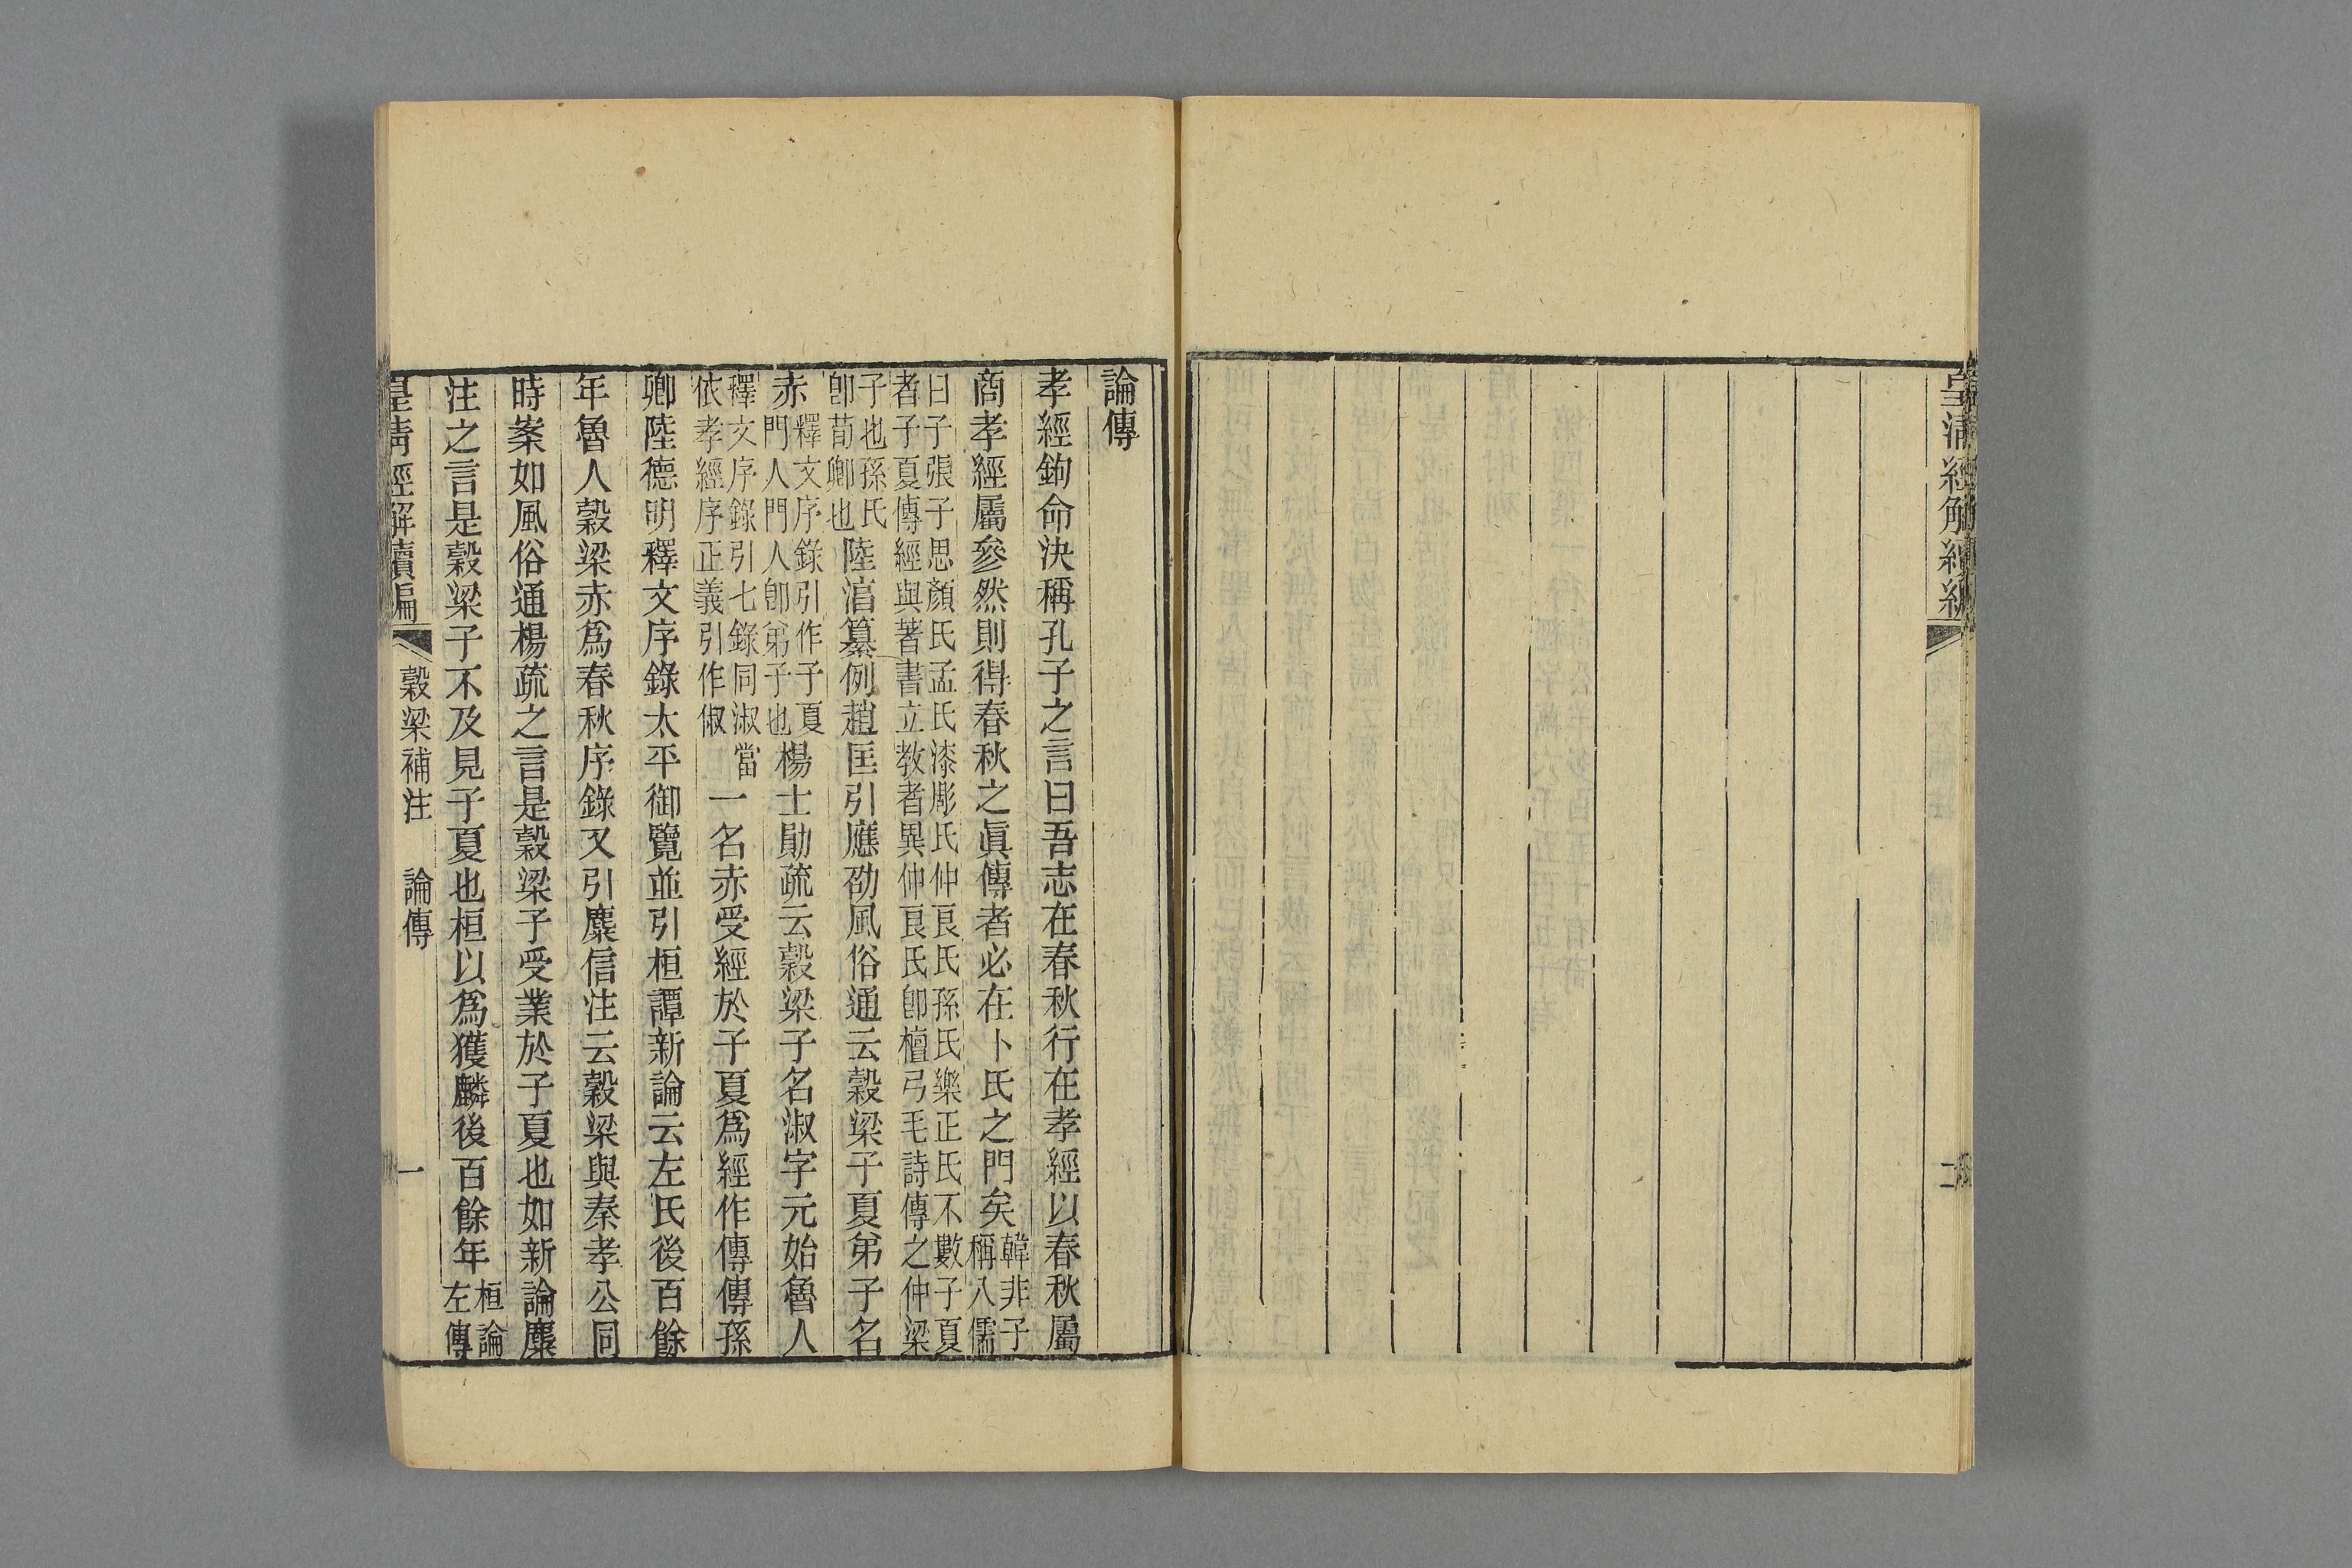 論傳
孝經鉤命決稱孔子之言曰吾志在春秋行在孝經以春秋屬
商孝經屬參然則得春秋之眞傳者必在卜氏之門矣韓非子稱八儒
曰子張子思顏氏孟氏漆彫氏仲良氏孫氏樂正氏不數子夏
者子夏傳經與著書立教者異仲良氏卽檀弓毛詩傳之仲梁
子也孫氏卽荀卿也陸淳纂例趙匡引應劭風俗通云穀梁子夏弟子名
赤釋文序錄引作子夏門人門人卽弟子也楊士勛疏云穀梁子名淑字元始魯人
釋文序錄引七錄同淑當依孝經序正義引作俶一名赤受經於子夏爲經作傳傳孫
卿陸德明釋文序錄太平御覽並引桓譚新論云左氏後百餘
年魯人穀梁赤爲春秋序錄又引麋信注云穀梁與秦孝公同
時案如風俗通楊疏之言是穀梁子受業於子夏也如新論麋
注之言是穀梁子不及見子夏也桓以爲獲麟後百餘年桓論左傳
皇清經解續編 穀梁補注 論傳 一
皇清經解續編